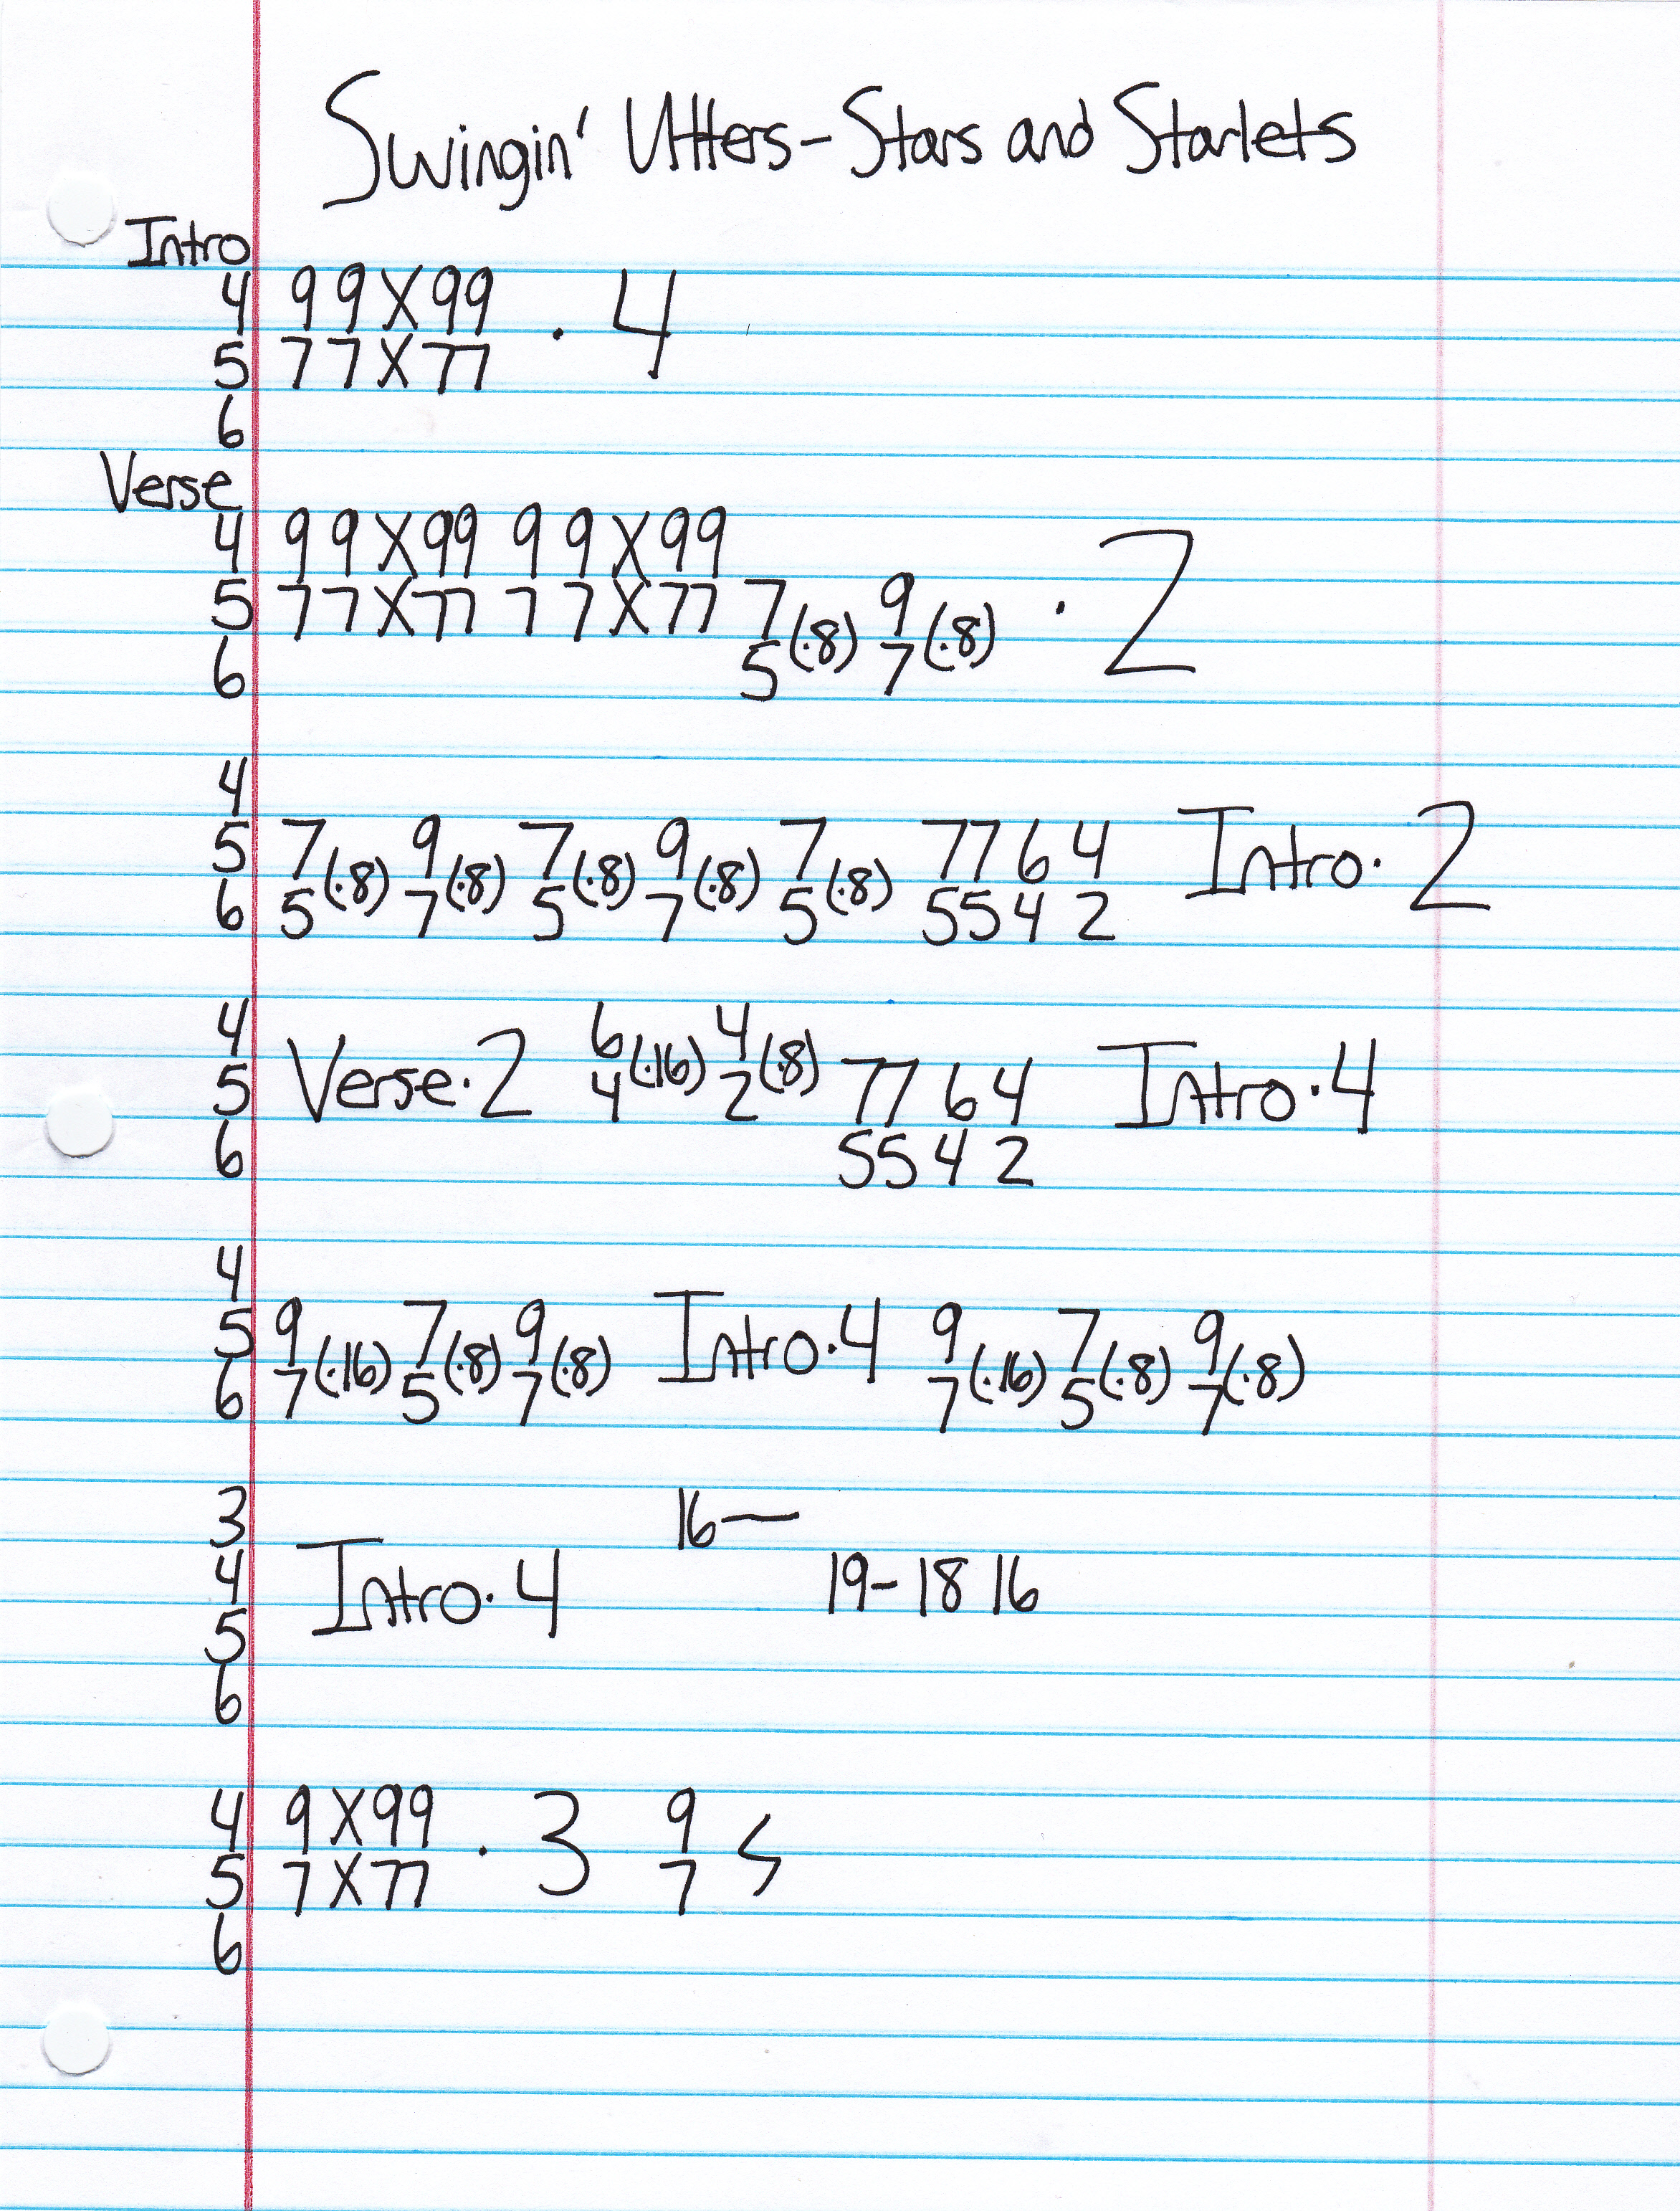 Swingin' Utters - Stars and Starlets
Intro
4 99X99 · 4
5 77X77
6
Verse
4 99X99 99X99
5 77X77 77X77 7(·8) 9(·8) · 2
6 5 7
4
5 7(·8) 9(·8) 7(·8) 9(·8) 7(·8) 7764 Intro · 2
6 5 7 5 7 5 5542
4 6(·16) 4(·8)
5 Verse · 2 4 2 7764 Intro · 4
6 5542
4
5 9(·16) 7(·8) 9(·8) Intro · 4 9(·16) 7(·8) 9(·8)
6 7 5 7 7 5 7
3 16—
4 Intro · 4 19-18 16
5
6
4 9X99 · 3 9
5 7X77 7
6